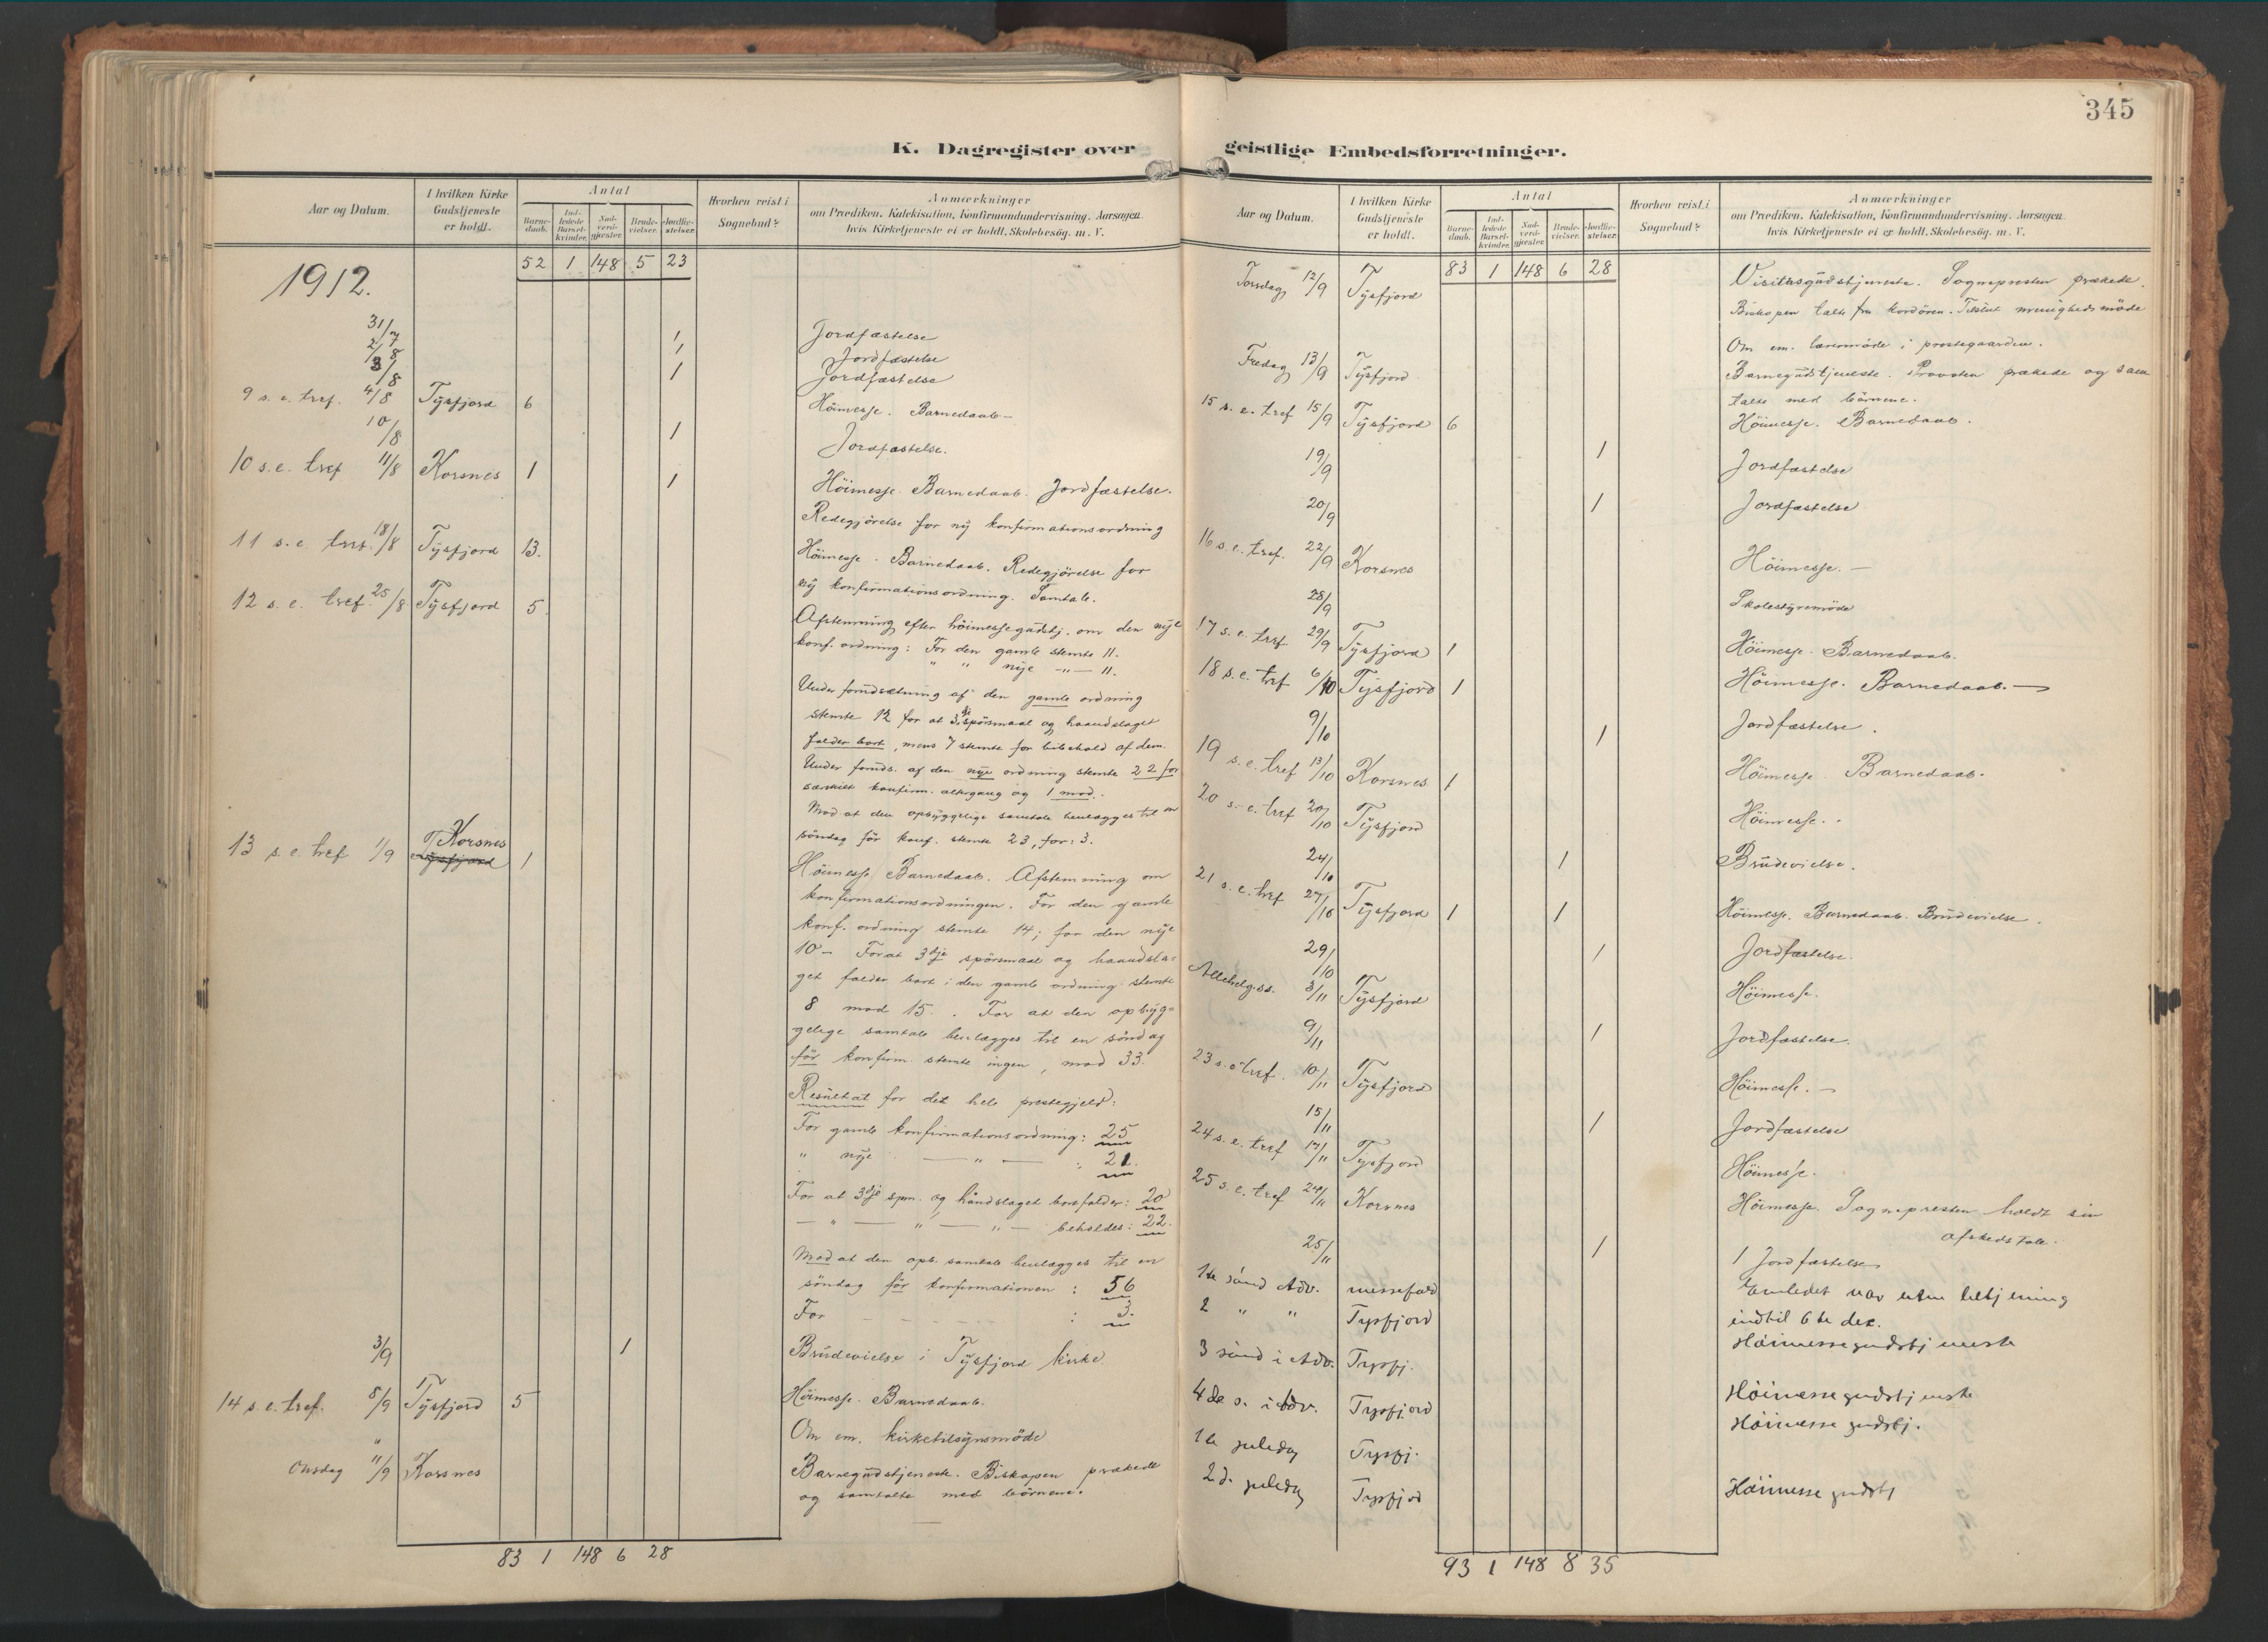 345
K. Dagregister over geistlige Embedsforretninger.
Aar og Datum.
I hvilken Kirke Gudstjeneste er holdt.
Antal
Barne-daab.
Ind-ledede Barsel-kvinder.
Nad-verd-gjæster.
Brude-vielser.
Jordfæ-stelser.
Hvorhen reist i Sognebud?
Anmærkninger
om Prædiken, Katekisation, Konfirmandundervisning, Aarsagen,
hvis Kirketjeneste ei er holdt, Skolebesög. m. V.
52 1 148 5 23
1912.
31/7 1 Jordfæstelse
2/8 1 Jordfæstelse
3/8 1 Jordfæstelse
9 s. e. tref. 4/8 Tysfjord 6 Höimesse. Barnedaab.—
10/8 1 Jordfæstelse.
10 s. e. tref 11/8 Korsnes 1 1 Höimesse. Barnedaab. Jordfæstelse.
Redegjörelse for ny konfirmationsordning
11 s. e. tref. 18/8 Tysfjord 13. Höimesse. Barnedaab. Redegjörelse for
ny konfirmationsordning. Samtale.
12 s. e. tref. 25/8 Tysfjord 5 Afstemning efter höimessegudstj. om den nye
konf. ordning: For den gamle stemte 11.
" " nye —"— 11.
Under forudsætning af den gamle ordning
stemte 12 for at 3dje spörsmaal og haandslaget
falder bort, mens 7 stemte for bibehold af dem.
Under foruds. af den nye ordning stemte 22 for
særskilt konfirm. altergang og 1 mod.
Mod at den opbyggelige samtale henlægges til en
söndag för konf. stemte 23, for: 3.
13 s. e. tref 1/9 Korsnes Tysfjord 1 Höimesse. Barnedaab. Afstemning om
konfirmationsordningen. For den gamle
konf. ordning stemte 14; for den nye
10 — For at 3dje spörsmaal og haandsla-
get falder bort i den gamle ordning stemte
8 mod 15. For at den opbyg-
gelige samtale henlægges til en söndag
för konfirm. stemte ingen, mod 33.
Resultat for det hele prestegjeld:
For gamle konfirmationsordning: 25
" nye — " — : 21.
For at 3dje spm. og håndslaget bortfalder: 20
— " — " — " — beholdes: 22.
Mod at den opb. samtale henlægges til en
söndag för konfirmationen: 56
For — — — : 3.
3/9 1 Brudevielse i Tysfjord kirke.
14 s. e. tref. 8/9 Tysfjord 5 Höimesse. Barnedaab.
" Om em. kirketilsynsmöde
Onsdag 11/9 Korsnes Barnegudstjeneste. Biskopen prækede
og samtalte med börnene.
83 1 148 6 28
Aar og Datum.
I hvilken Kirke Gudstjeneste er holdt.
Antal
Barne-daab.
Ind-ledede Barsel-kvinder.
Nad-verd-gjæster.
Brude-vielser.
Jordfæ-stelser.
Hvorhen reist i Sognebud?
Anmærkninger
om Prædiken, Katekisation, Konfirmandundervisning, Aarsagen,
hvis Kirketjeneste ei er holdt, Skolebesög. m. V.
83 1 148 6 28
Torsdag 12/9 Tysfjord Visitasgudstjeneste. Sognepresten prækede.
Biskopen talte fra kordören. Tilslut menighedsmöde
Om em. lærermöde i prestegaarden.
Fredag 13/9 Tysfjord Barnegudstjeneste. Provsten prækede og sam
talte med börnene.
15 s. e. tref 15/9 Tysfjord 6 Höimesse. Barnedaab.
19/9 1 Jordfæstelse
20/9 1 Jordfæstelse
16 s. e. tref. 22/9 Korsnes Höimesse. —
28/9 Skolestyremöde
17 s. e. tref. 29/9 Tysfjord 1 Höimesse. Barnedaab.
18 s. e. tref 6/10 Tysfjord 1 Höimesse. Barnedaab. —
9/10 1 Jordfæstelse.
19 s. e. tref 13/10 Korsnes 1 Höimesse. Barnedaab.
20 s. e. tref 20/10 Tysfjord Höimesse.
24/10 1 Brudevielse.
21 s. e. tref 27/10 Tysfjord 1 1 Höimesse. Barnedaab. Brudevielse.
29/10 1 Jordfæstelse.
Allehelg.ss. 3/11 Tysfjord Höimesse.
9/11 1 Jordfæstelse.
23 s. e. tref. 10/11 Tysfjord Höimesse. —
15/11 1 Jordfæstelse
24 s. e. tref 17/11 Tysfjord Höimesse.
25 s. e. tref 24/11 Korsnes Höimesse. Sognepresten holdt sin
afskedstale.
25/11 1 1 Jordfæstelse
1ste sönd Adv. messefald Embedet var uten betjening
indtil 6te dec.
2 " " Tysfjord Höimessegudstjeneste
3 sönd i Adv. Tysfj. Höimessegudstjeneste
4de s. i Adv. Tysfjord Höimesse gudstj.
1ste juledag Tysfj.
2. d. juledag Tysfjod Höimesse gudstj
93 1 148 8 35